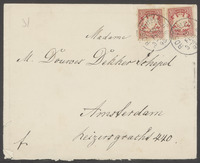 Madame
M. Douwes Dekker Schepel
Amsterdam
Keizersgracht 440.
f.